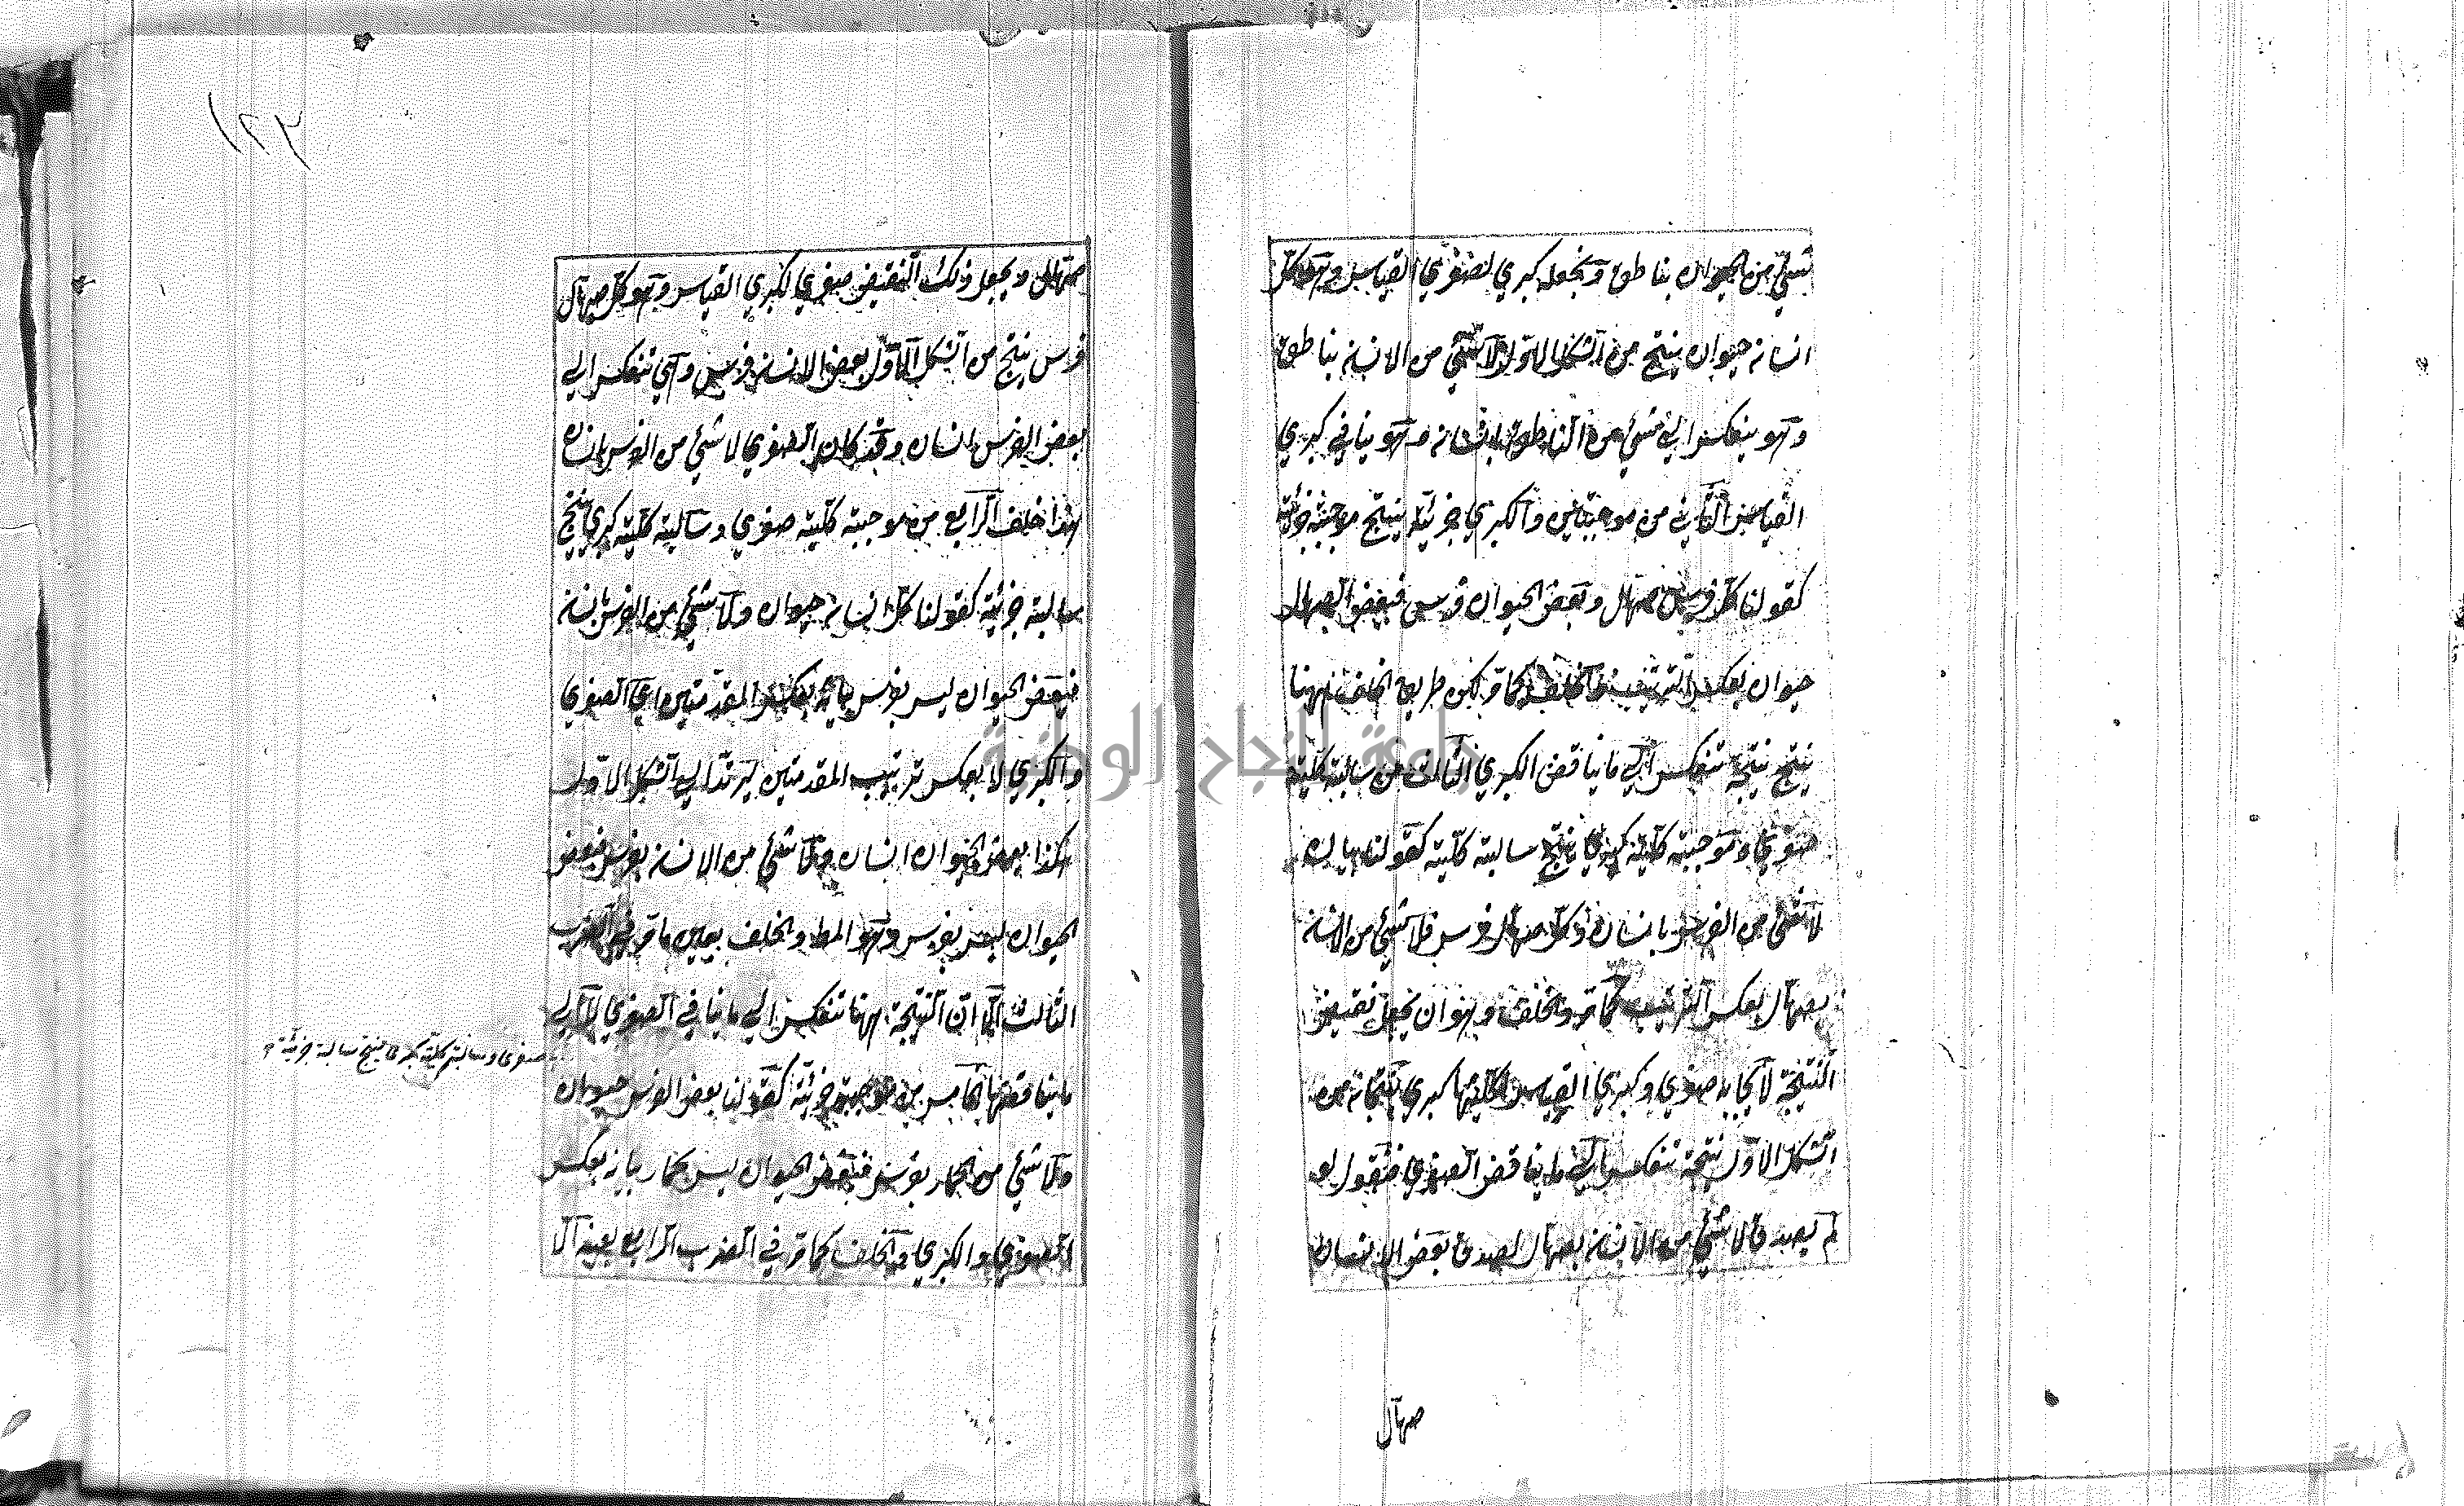 شيئ من الحيوان بناطق ونجعله كبري لصغري القياس وهو كل
انسانه حيوان ينتج من الشكل الاول لا شيئ من الانسانه بناطق
وهو ينعكس الي لا شيئ من الناطق بانسانه وهو ينافي كبري
القياس الثاني من موجبتين والكبري جزئية ينتج موجبة جزئية
كقولنا كل فرس صهال وبعض الحيوان فرس فبعض الصهال
حيوان بعكس الترتيب والخلف كما مر لكن طريق الخلف ههنا
ينتج نتيجة تنعكس الي ما يناقض الكبري الثالث من سالبة كلية
صغري وموجبة كلية كبري ينتج سالبة كلية كقولنا
لا شيئ من الفرس بانسان وكل صهال فرس فلا شيئ من الانسانه
بصهال بعكس الترتيب كما مر والخلف وهو ان نجعل نقيض
النتيجة لايجابه صغري وكبري القياس لكليتها كبري لينتجانه من
الشكل الاول نتيجة تنعكس الي ما يناقض الصغري فنقول لو
لم يصدق لا شيئ من الانسانه بصهال لصدق بعض الانسان
صهال
١٢٢
صهال ويجعل ذلك النقيض صغري لكبري القياس وهو كل صهال
فرس ينتج من الشكل الاول بعض الانسانه فرس وهي تنعكس الي
بعض الفرس انسان وقد كان الصغري لا شيئ من الفرس بانسان
هذا خلف الرابع من موجبة كلية صغري وسالبة كلية كبري ينتج
سالبة جزئية كقولنا كل انسانه حيوان ولا شيئ من الفرس بانسانه
فبعض الحيوان ليس بفرس بيانه بعكس المقدمتين اي الصغري
والكبري لا بعكس ترتيب المقدمتين ليرتد الي الشكل الاول
هكذا بعض الحيوان انسان ولا شيئ من الانسانه بفرس فبعض
الحيوان ليس بفرس وهو المط والخلف بعين ما مر في الضرب
الثالث الا ان النتيجة ههنا تنعكس الي ما ينافي الصغري لا الي
ما يناقضها الخامس من موجبة جزئية كقولنا بعض الفرس حيوان
صغرى وسالبة كلية كبرى ينتج سالبة جزئية
ولا شيئ من الحمار بفرس فبعض الحيوان ليس بحمار بيانه بعكس
الصغري والكبري والخلف كما مر في الضرب الرابع بعينه الا
جامعة النجاح الوطنية